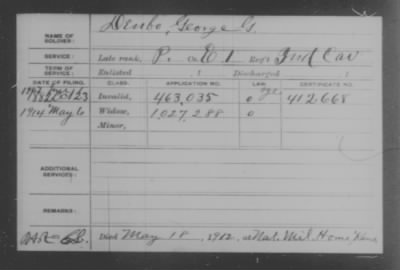 NAME OF SOLDIER: Denbo, George G.
SERVICE: Late rank, P. Co. D & I, Reg't 3 Ind Cav
TERM OF SERVICE: Enlisted 1 Discharged 1
DATE OF FILING. CLASS. APPLICATION NO. CERTIFICATE NO.
Invalid, 463,035 412,668
1914 May 6 Widow, 1,027,288 0
Minor,
ADDITIONAL SERVICES:
REMARKS:
Died May 18, 1912, at Nat. Mil. Home